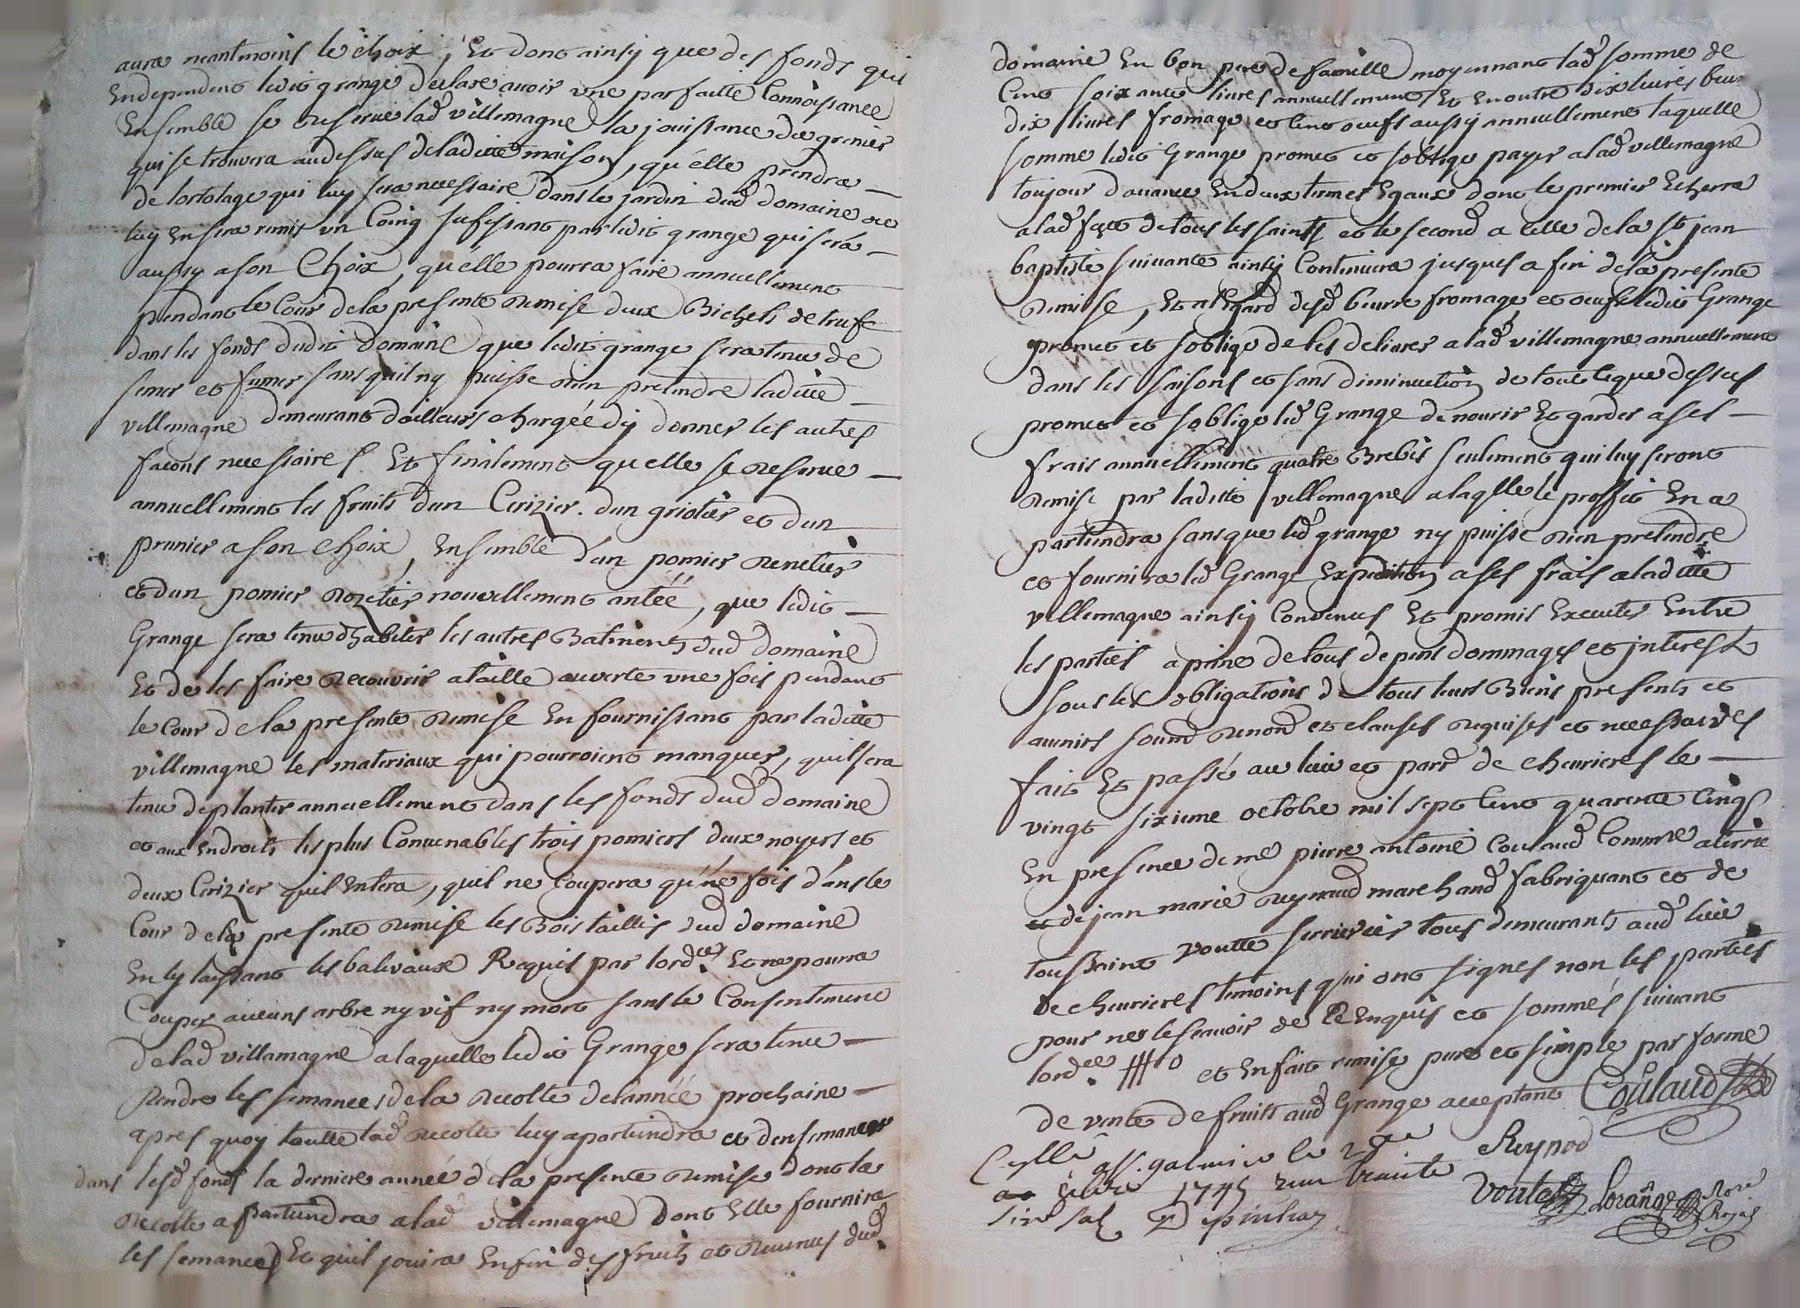 aura neantmoins le choix, Et dont ainsy que des fonds quil
Endependent ledit grange declare avoir une parfaitte Connoissance
Ensemble se reserve lad villemagne la jouissance du grenier
qui se trouvera audessus deladitte maison, qu'elle prendra
de lortolage qui luy sera necessaire dans le jardin dud domaine ou
luy En sera remis un Coing sufissant par ledit grange qui sera
aussy a son Choix, quelle pourra faire annuellement
pendant le Cour dela presente remise deux Bichets de trufe
dans les fonds dudit domaine que ledit grange sera tenu de
semer et fumer sans quil ny puisse rien pretendre laditte
villemagne demeurant dailleurs chargée dy donner les autres
façons necessaires Et finalement quelle se reserve
annuellement les fruits dun Cerizier. dun griotier et dun
prunier a son choix, Ensemble d'un pomier renetier
et dun pomier rozetier nouvellement antéé, que ledit
Grange sera tenu dhabiter les autres Batiments dud domaine
Et de les faire recouvrir a taille ouverte une fois pendant
le Cour dela presente remise En fournissant par laditte
villemagne les materiaux qui pourroient manquer, quil sera
tenu de planter annuellement dans les fonds dud domaine
et aux Endroits les plus Convenables trois pomiers deux noyers et
deux Cerizier quil Entera, quil ne Coupera qu'une fois dans le
Cour dela presente remise les Bois taillis dud domaine
En ly laissant les balivaux Requis par lordce, Et ne pourra
Couper aucuns arbre ny vif ny mort sans le Consentement
delad villamagne a laquelle ledit Grange sera tenu
rendre les semances dela recolte delannéé prochaine
apres quoy toutte lad recolte luy apartiendra et densemancer
dans lesd fonds la derniere année dela presente remise dont la
recolte apartiendra a lad villemagne dont Elle fournira
les semances Et quil jouira Enfin des fruits et revenus dud
domaine En bon pere de famille moyennant lad somme de
Cent soixante livres annuellement Et En outre dix livres beurre
dix livres fromage et Cent oeufs aussy annuellement laquelle
somme ledit Grange promet et soblige payer a lad villemagne
toujour davance En deux termes Egaux dont le premier Echerra
a lad fete de tous les saints et le second a Celle dela st jean
baptiste suivante ainsy Continuera jusques a fin dela presente
remise, Et alEgard desd beurre fromage et oeufs ledit Grange
promet et soblige de les delivrer a lad villemagne annuellement
dans les saisons et sans diminution de tout ce que dessus
promet et soblige led Grange de nourir Et garder a ses
frais annuellement quatre Brebis seulement qui luy seront
remise par laditte villemagne a laqlle le proffit En
partiendra sans que led grange ny puisse rien pretendre
et fournira led Grange Expedition a ses frais a laditte
villemagne ainsy Convenus Et promis Executer Entre
les parties a peine de tous depens dommages et jnterests
sous les obligations de tous leurs Biens presents et
avenirs soumd renond et clauses requises et necessaires
fait Et passé au lieu et parr de chevrieres le
vingt sixieme octobre mil sept Cent quarente Cinq
En presence de me pierre antoine Coulaud Commre a terrie
et de jean marie reynaud marchand fabriquant et de
toussaint voutte serrurier tous demeurants aud lieu
de chevrieres temoins qui ont signes non les parties
pour ne le scavoir de Ce Enquis et sommés suivant
lordce et En fait remise pure et simple par forme
de vente de fruits aud Grange acceptant Coulaud
Reynod
voute Lorange
Not
Royal
Cllé a st. galmier le
1745 recu traitte